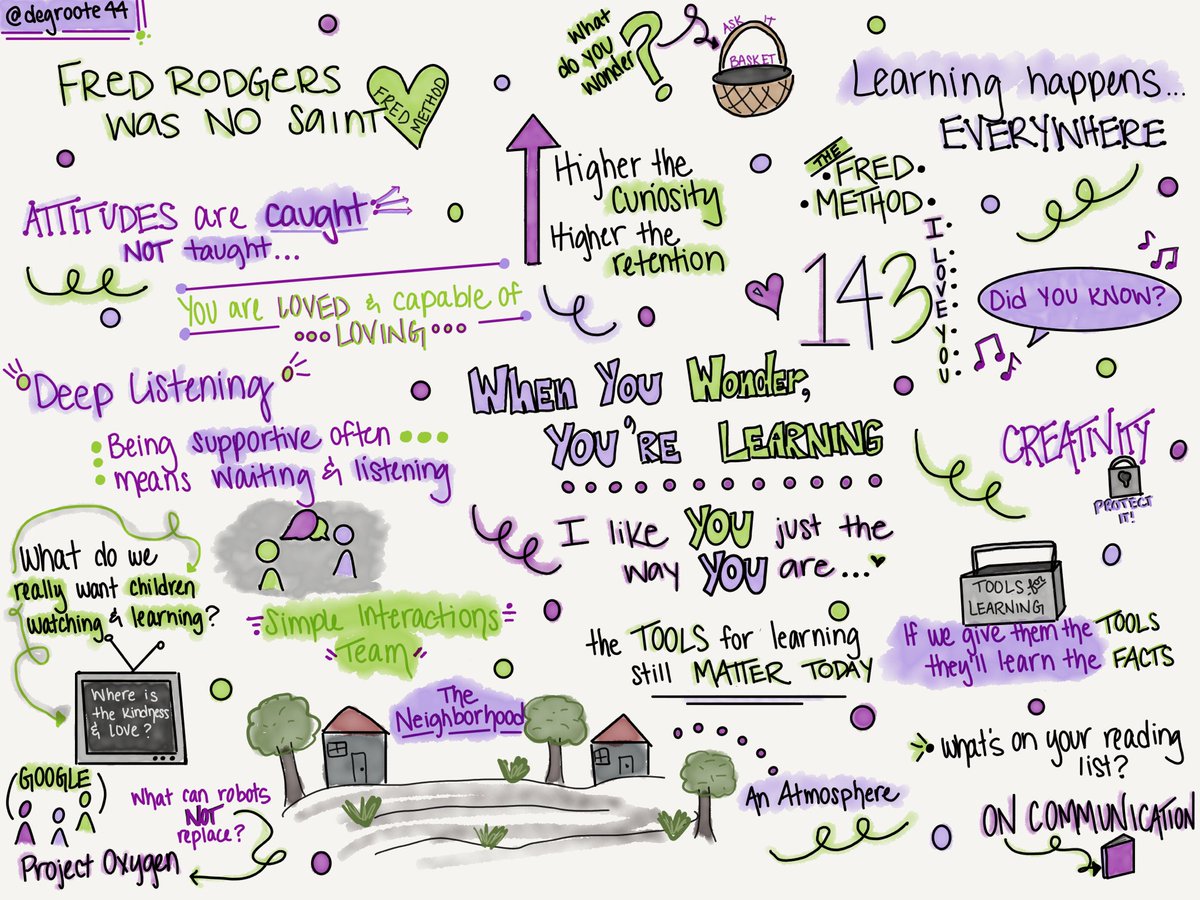 @degroote44
FRED RODGERS
WAS NO SaiNT
FRED
METHOD
What
do you
wonder
?
ASK IT
BASKET
Learning happens...
EVERYWHERE
ATTITUDES are caught
NOT taught...
Higher the
curiosity
Higher the
retention
THE
FRED
METHOD
143
I LOVE YOU
Did you know?
You are LOVED & capable of
LOVING
Deep Listening
Being supportive often
means waiting & listening
WHEN YOU WONDER,
YOU'RE LEARNING
I like YOU just the
way YOU are...
CREATIVITY
PROTECT
IT!
What do we
really want children
watching & learning?
Where is
the kindness
& LOVE?
Simple Interactions
Team
TOOLS for
LEARNING
If we give them the TOOLS
they'll learn the FACTS
the TOOLS for learning
still MATTER TODAY
The
Neighborhood
An Atmosphere
What's on your reading
list?
ON COMMUNICATION
(GOOGLE)
Project Oxygen
What can robots
NOT
replace?